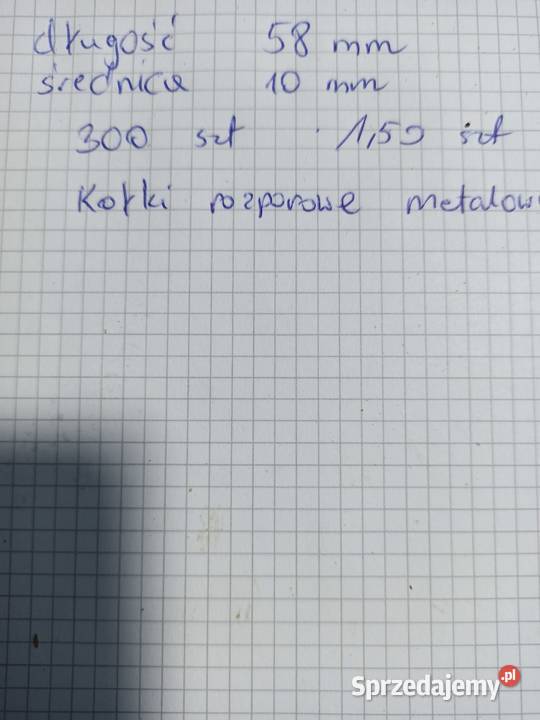 długość 58 mm
średnica 10 mm
300 szt 1,50 szt
Kołki rozporowe metalow
Sprzedajemy.pl